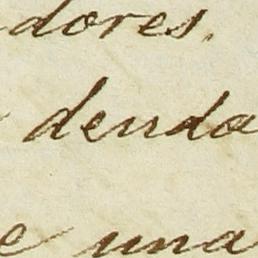 dores.
deuda
e una